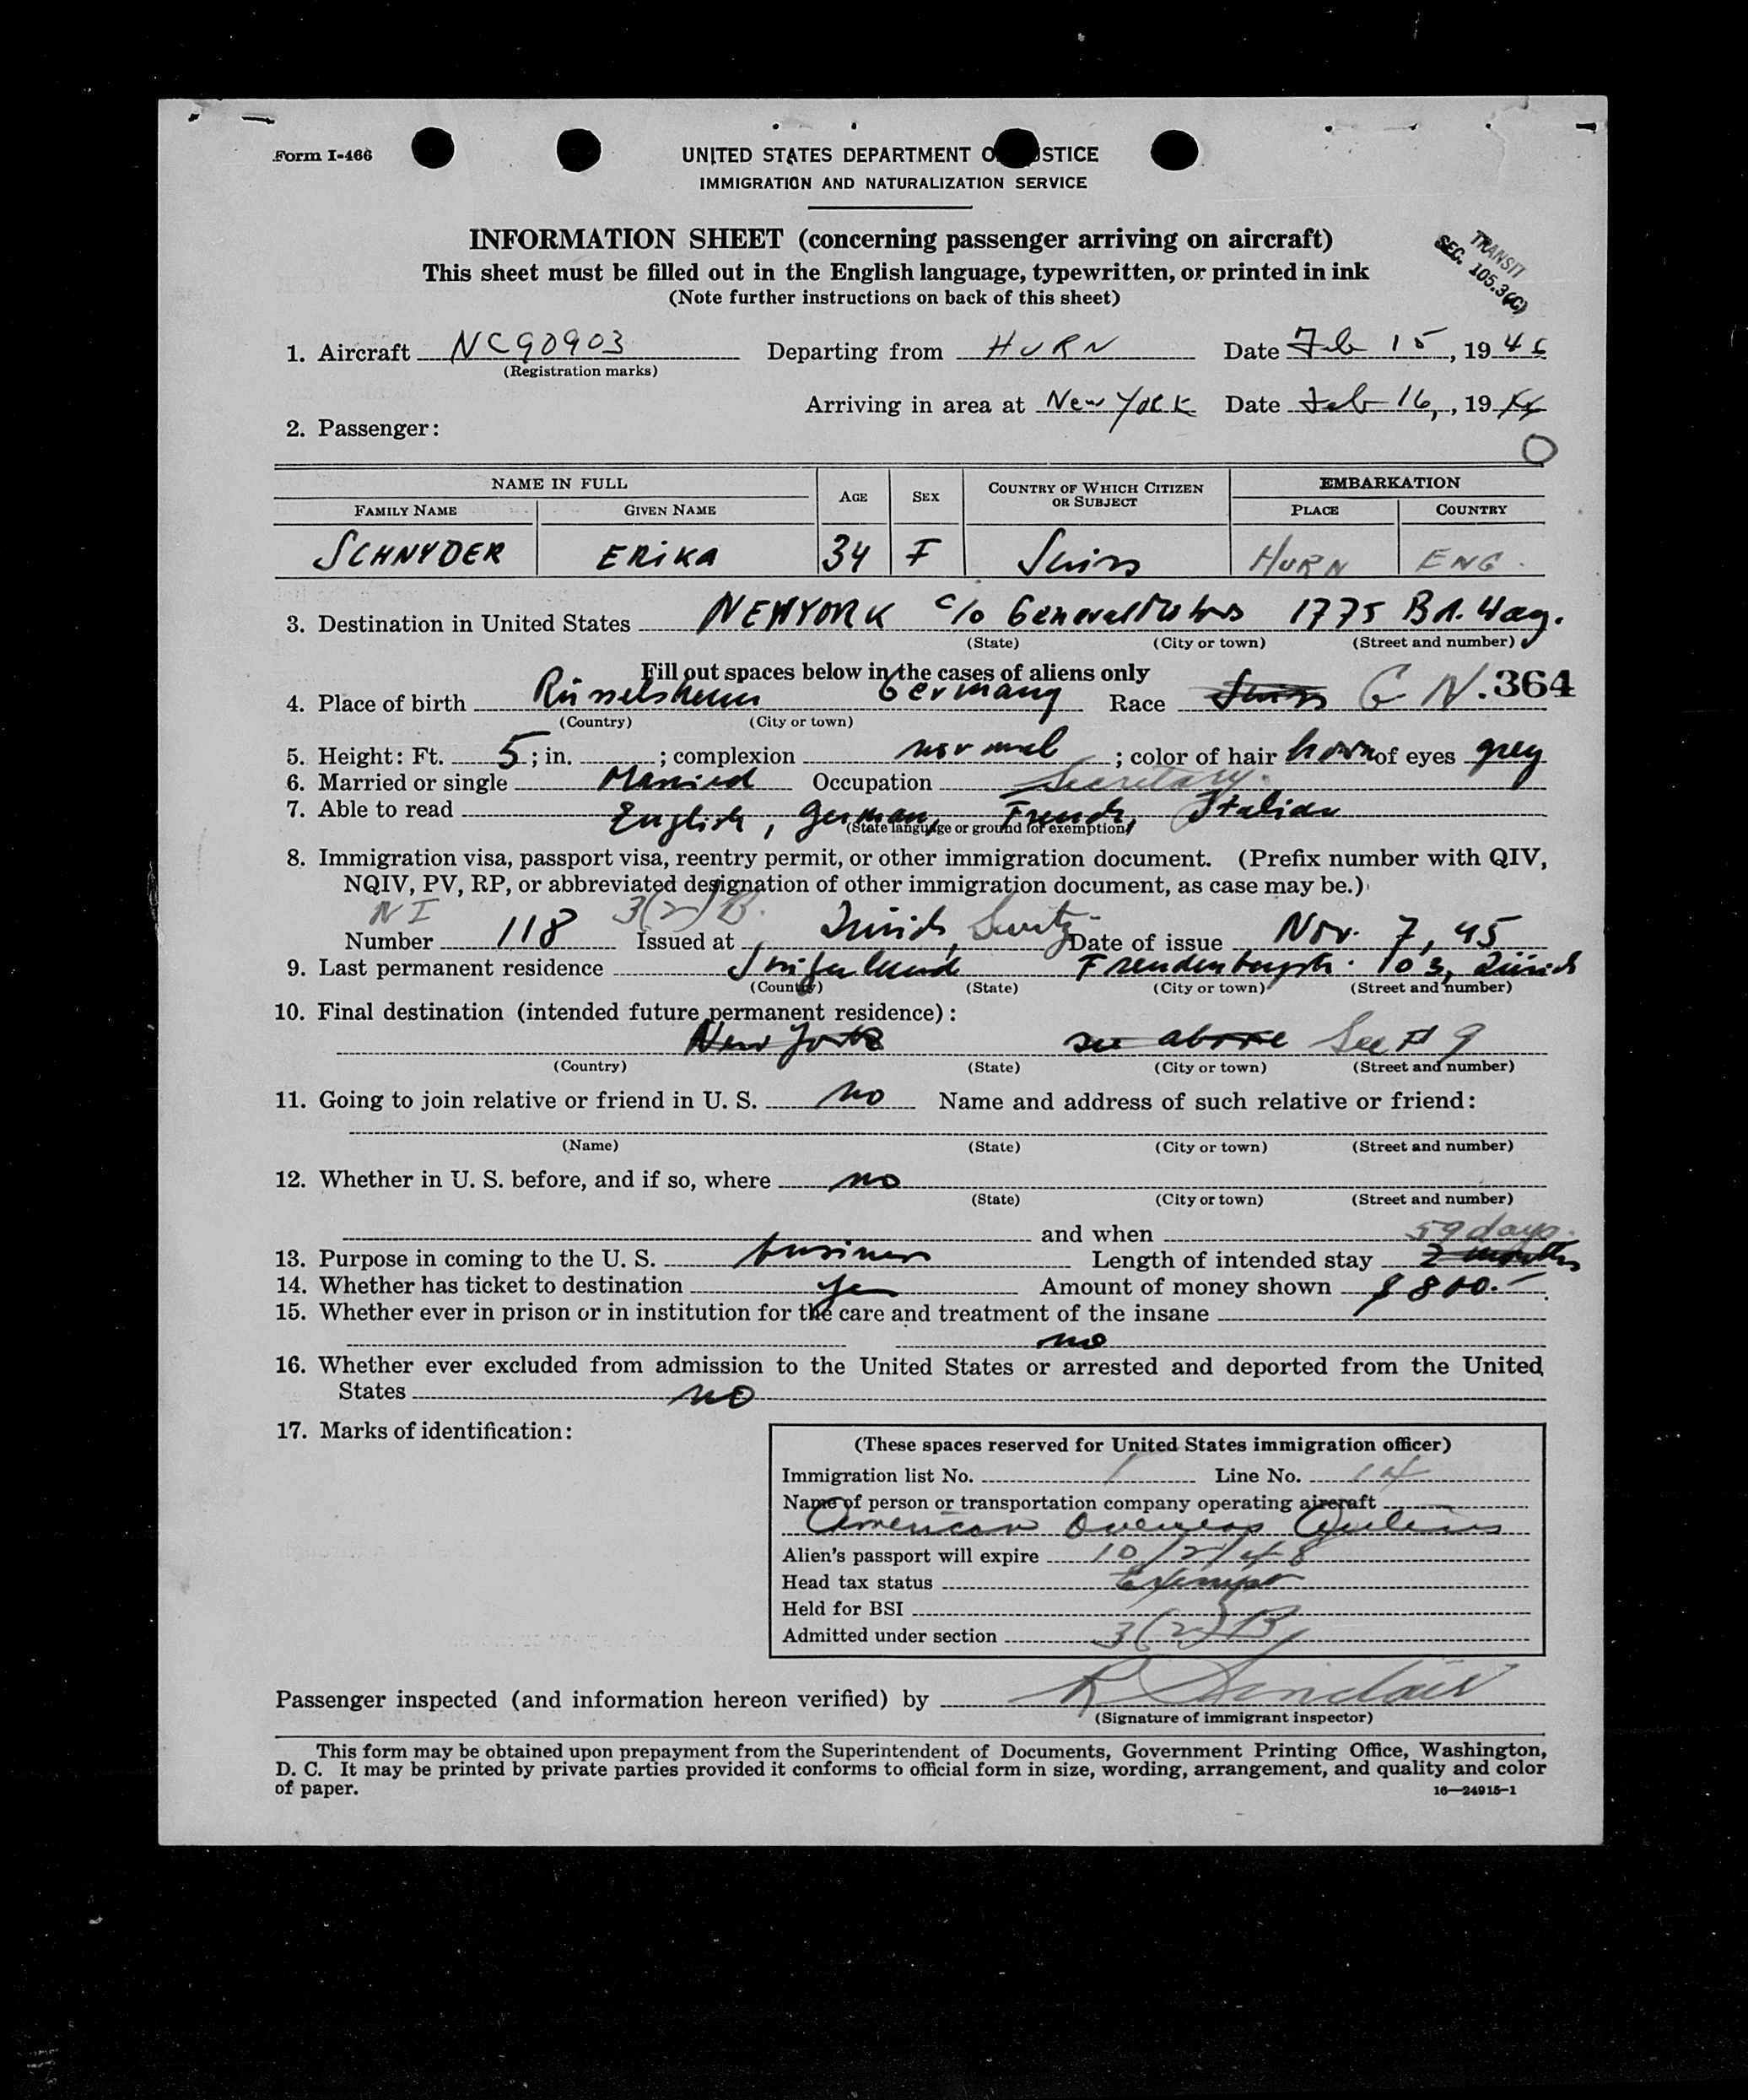 Form I-466
UNITED STATES DEPARTMENT O STICE
IMMIGRATION AND NATURALIZATION SERVICE
INFORMATION SHEET (concerning passenger arriving on aircraft)
This sheet must be filled out in the English language, typewritten, or printed in ink
(Note further instructions on back of this sheet)
TRANSIT
SEC. 105.3(C)
1. Aircraft NC90903 Departing from HURN Date Feb 15, 1946
(Registration marks)
Arriving in area at New York Date Feb 16, 19
2. Passenger:
O
NAME IN FULL AGE SEX COUNTRY OF WHICH CITIZEN OR SUBJECT EMBARKATION
FAMILY NAME GIVEN NAME PLACE COUNTRY
SCHNYDER ERIKA 34 F Swiss HURN ENG.
3. Destination in United States NEWYORK c/o General Motors 1775 Bd. Way.
(State) (City or town) (Street and number)
Fill out spaces below in the cases of aliens only
4. Place of birth Rüsselsheim Germany Race Swiss G N. 364
(Country) (City or town)
5. Height: Ft. 5; in. ; complexion normal; color of hair brown of eyes grey
6. Married or single Married Occupation Secretary.
7. Able to read English, German, French, Italian
(State language or ground for exemption)
8. Immigration visa, passport visa, reentry permit, or other immigration document. (Prefix number with QIV,
NQIV, PV, RP, or abbreviated designation of other immigration document, as case may be.)
NI 3(2)B.
Number 118 Issued at Zürich, Switz Date of issue Nov. 7, 45
9. Last permanent residence Switzerland Freudenbergstr. 103, Zürich
(Country) (State) (City or town) (Street and number)
10. Final destination (intended future permanent residence):
New York see above See # 9
(Country) (State) (City or town) (Street and number)
11. Going to join relative or friend in U. S. no Name and address of such relative or friend:
(Name) (State) (City or town) (Street and number)
12. Whether in U. S. before, and if so, where no
(State) (City or town) (Street and number)
and when
59 days.
13. Purpose in coming to the U. S. business Length of intended stay 2 months
14. Whether has ticket to destination yes Amount of money shown $ 800.-
15. Whether ever in prison or in institution for the care and treatment of the insane
no
16. Whether ever excluded from admission to the United States or arrested and deported from the United
States no
17. Marks of identification:
(These spaces reserved for United States immigration officer)
Immigration list No. 1 Line No. 14
Name of person or transportation company operating aircraft
American Overseas Airlines
Alien's passport will expire 10/2/48
Head tax status Exempt
Held for BSI
Admitted under section 3(2)B
Passenger inspected (and information hereon verified) by R Sinclair
(Signature of immigrant inspector)
This form may be obtained upon prepayment from the Superintendent of Documents, Government Printing Office, Washington,
D. C. It may be printed by private parties provided it conforms to official form in size, wording, arrangement, and quality and color
of paper.
16—24915-1